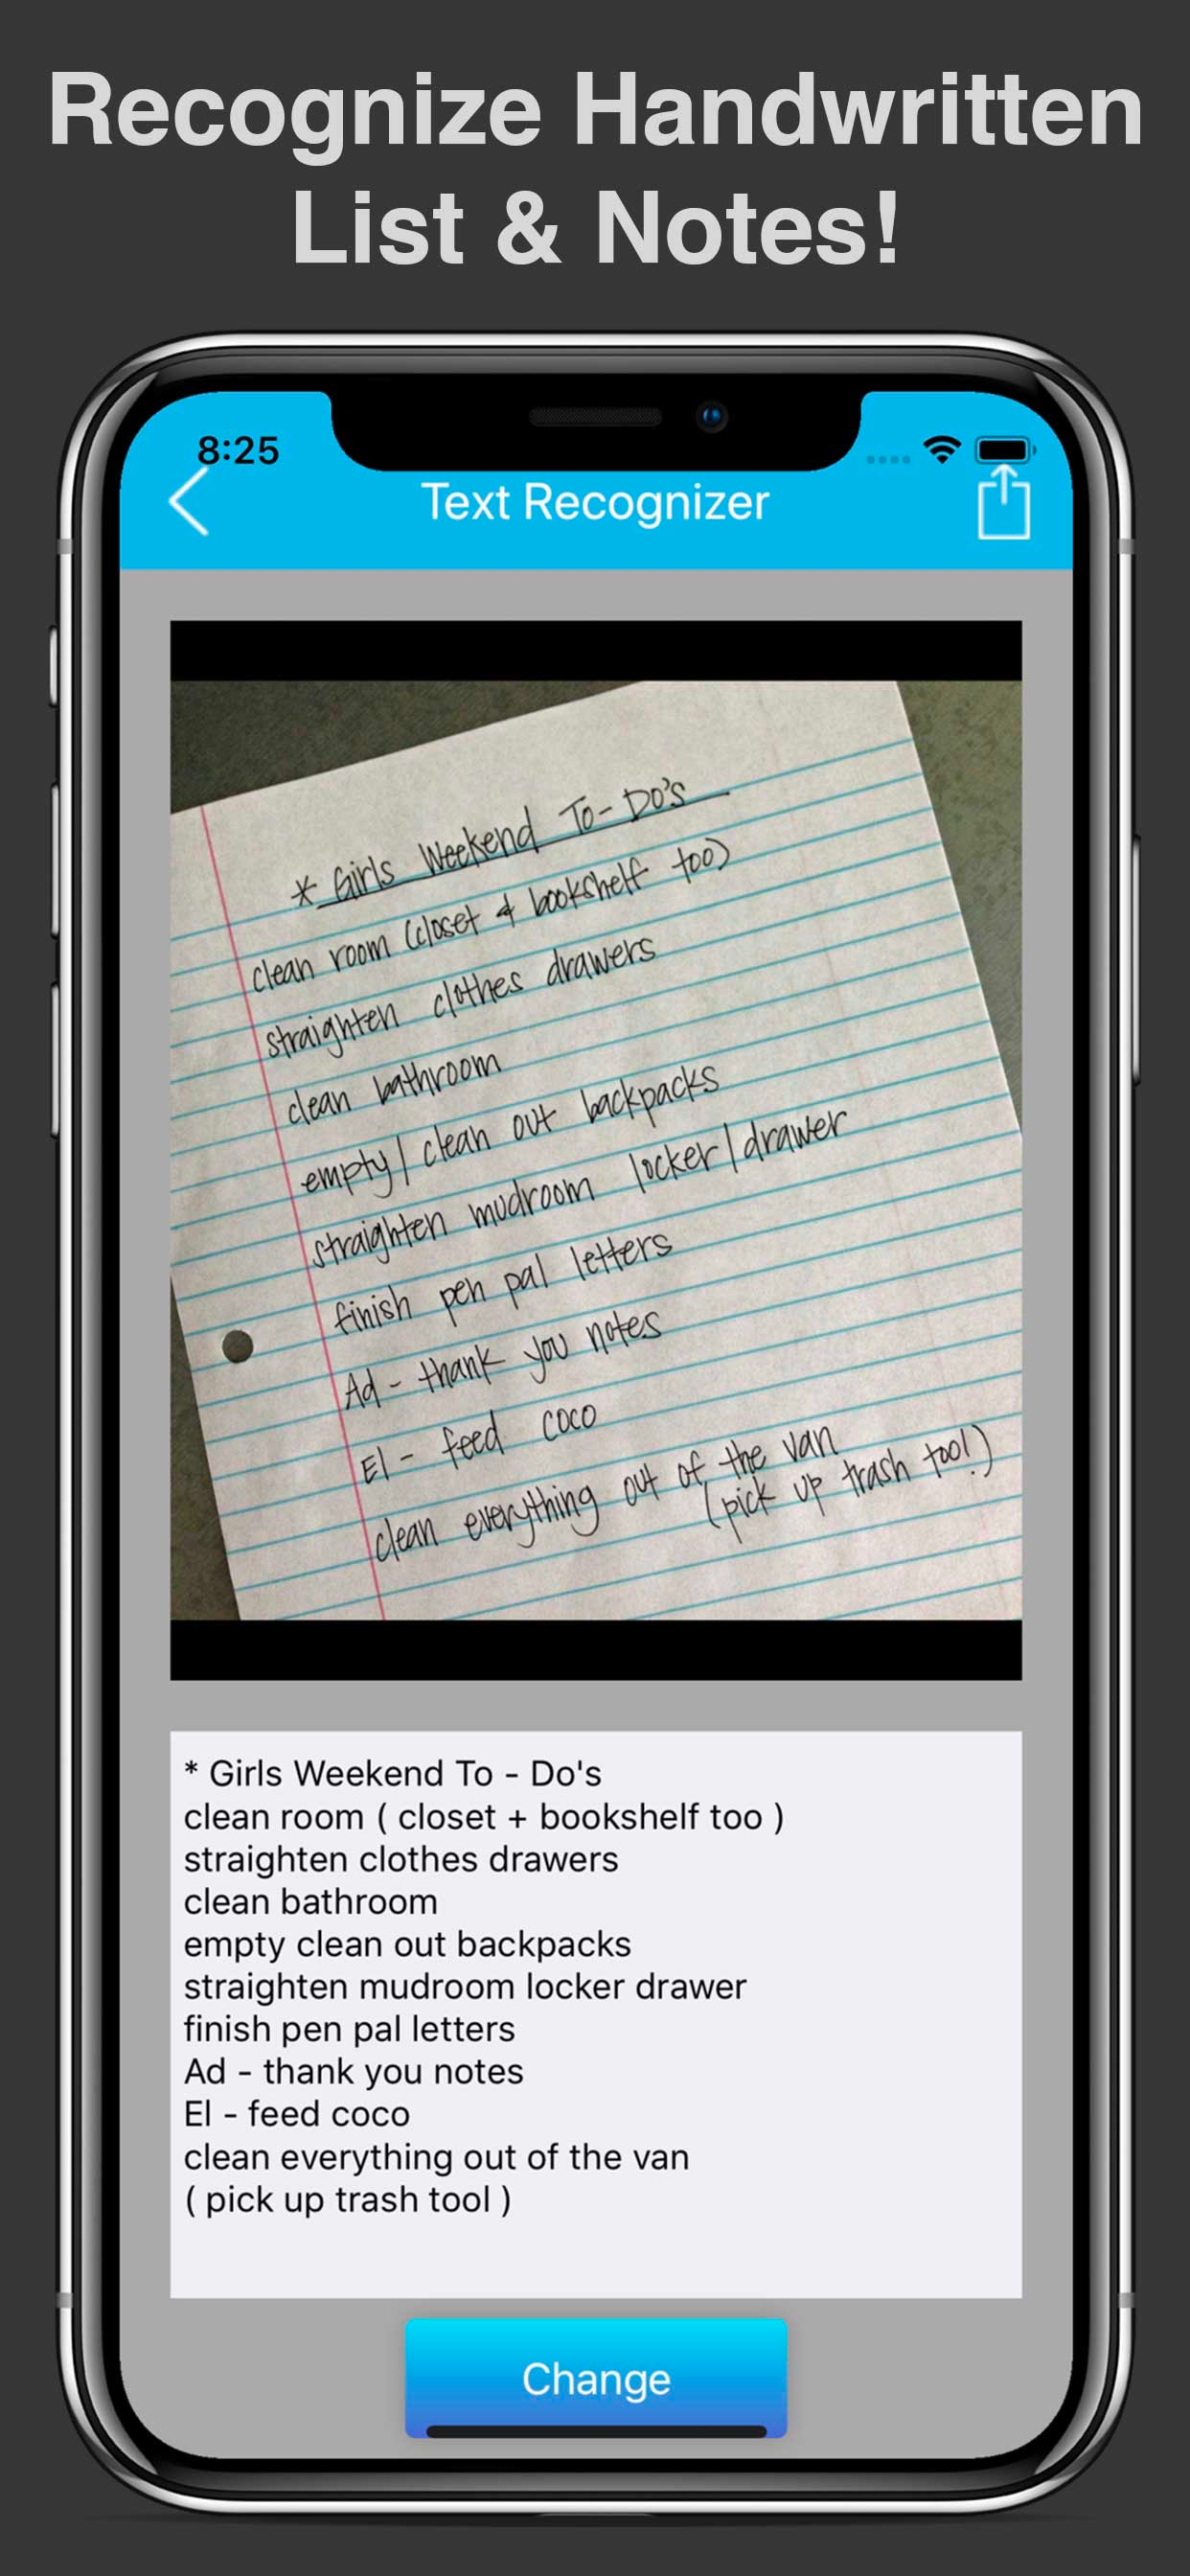 Recognize Handwritten
List & Notes!
8:25
Text Recognizer
* Girls Weekend To-Do's
clean room (closet & bookshelf too)
straighten clothes drawers
clean bathroom
empty/clean out backpacks
straighten mudroom locker/drawer
finish pen pal letters
Ad - thank you notes
El - feed coco
clean everything out of the van
(pick up trash too!)
* Girls Weekend To - Do's
clean room ( closet + bookshelf too )
straighten clothes drawers
clean bathroom
empty clean out backpacks
straighten mudroom locker drawer
finish pen pal letters
Ad - thank you notes
El - feed coco
clean everything out of the van
( pick up trash tool )
Change